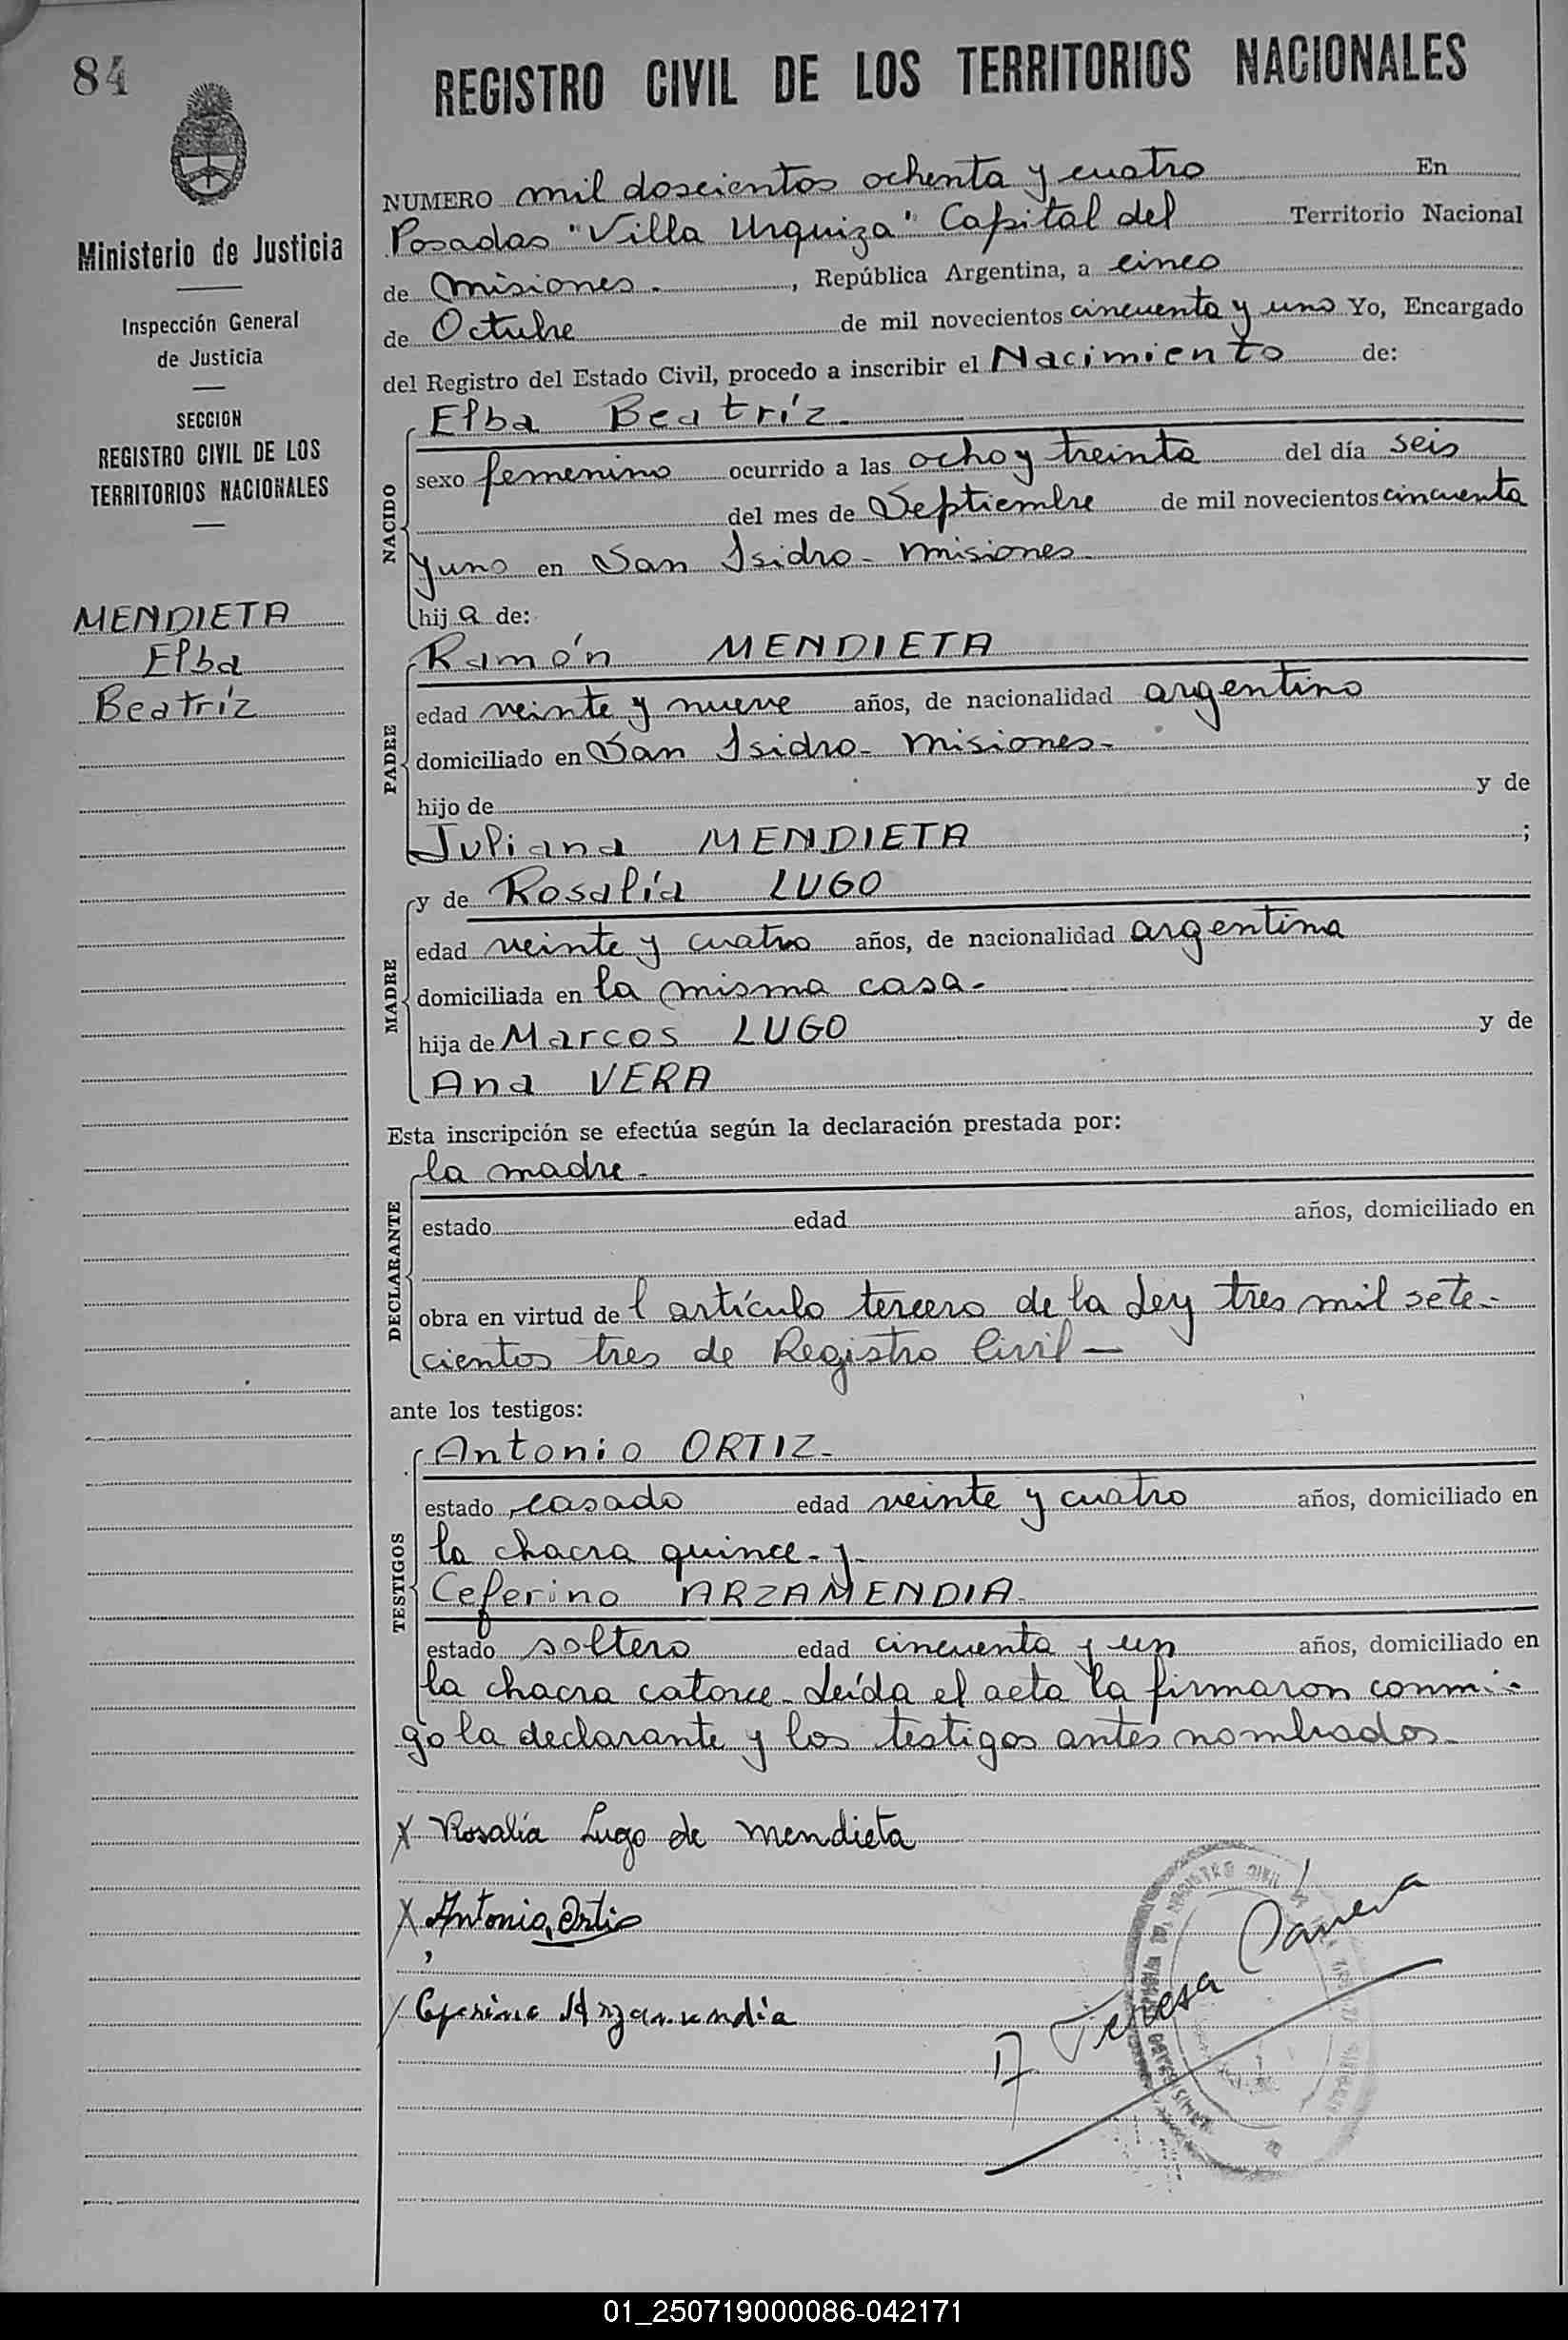 84
REGISTRO CIVIL DE LOS TERRITORIOS NACIONALES
Ministerio de Justicia
Inspección General
de Justicia
SECCION
REGISTRO CIVIL DE LOS
TERRITORIOS NACIONALES
MENDIETA
Elba
Beatríz
NUMERO mil doscientos ochenta y cuatro En
Posadas "Villa Urquiza" Capital del Territorio Nacional
de Misiones. , República Argentina, a cinco
de Octubre de mil novecientos cincuenta y uno Yo, Encargado
del Registro del Estado Civil, procedo a inscribir el Nacimiento de:
NACIDO
Elba Beatríz.
sexo femenino ocurrido a las ocho y treinta del día seis
del mes de Septiembre de mil novecientos cincuenta
y uno en San Isidro - Misiones.
hij a de:
PADRE
Ramón MENDIETA
edad veinte y nueve años, de nacionalidad argentino
domiciliado en San Isidro - Misiones -
hijo de y de
Juliana MENDIETA ;
MADRE
y de Rosalía LUGO
edad veinte y cuatro años, de nacionalidad argentina
domiciliada en la misma casa -
hija de Marcos LUGO y de
Ana VERA
Esta inscripción se efectúa según la declaración prestada por:
DECLARANTE
la madre -
estado edad años, domiciliado en
obra en virtud de l artículo tercero de la Ley tres mil sete-
cientos tres de Registro Civil —
ante los testigos:
TESTIGOS
Antonio ORTIZ -
estado casado edad veinte y cuatro años, domiciliado en
la chacra quince - y
Ceferino ARZAMENDIA
estado soltero edad cincuenta y un años, domiciliado en
la chacra catorce - Leída el acta la firmaron conmi-
go la declarante y los testigos antes nombrados -
X Rosalía Lugo de Mendieta
X Antonio Ortiz
Ceferino Arzamendia
Teresa
01_250719000086-042171